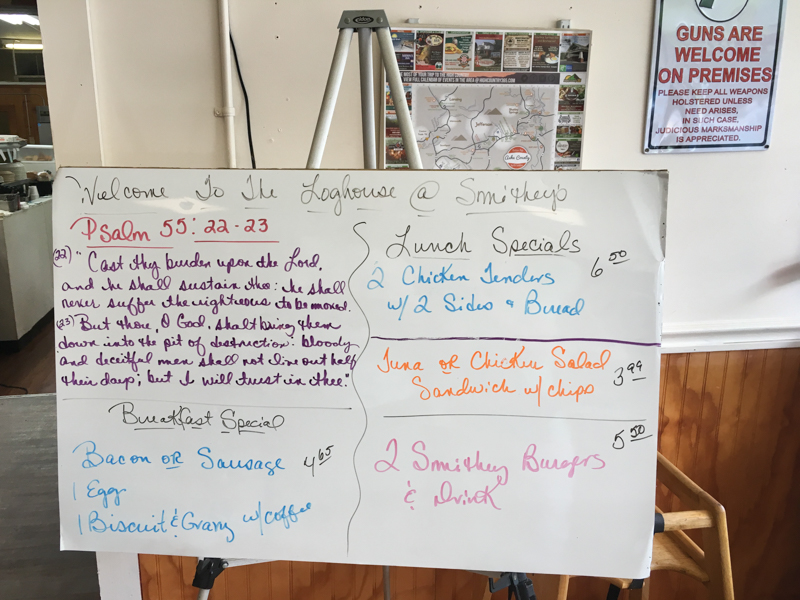 Welcome To The Loghouse @ Smithey's
Psalm 55: 22-23
(22) "Cast thy burden upon the Lord,
and he shall sustain thee: he shall
never suffer the righteous to be moved.
(23) But thou, O God, shalt bring them
down into the pit of destruction: bloody
and deceitful men shall not live out half
their days; but I will trust in thee."
Breakfast Special
Bacon OR Sausage 4.65
1 Egg
1 Biscuit & Gravy w/coffee
Lunch Specials
2 Chicken Tenders 6.50
w/ 2 Sides & Bread
Tuna OR Chicken Salad
Sandwich w/ chips 3.99
5.50
2 Smithey Burgers
& Drink
GUNS ARE
WELCOME
ON PREMISES
PLEASE KEEP ALL WEAPONS
HOLSTERED UNLESS
NEED ARISES,
IN SUCH CASE,
JUDICIOUS MARKSMANSHIP
IS APPRECIATED.